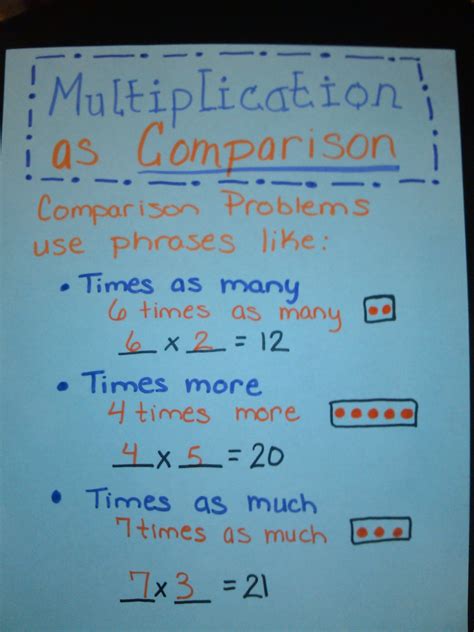 Multiplication
as Comparison
Comparison Problems
use phrases like:
• Times as many
6 times as many
6 x 2 = 12
• Times more
4 times more
4 x 5 = 20
• Times as much
7 times as much
7 x 3 = 21